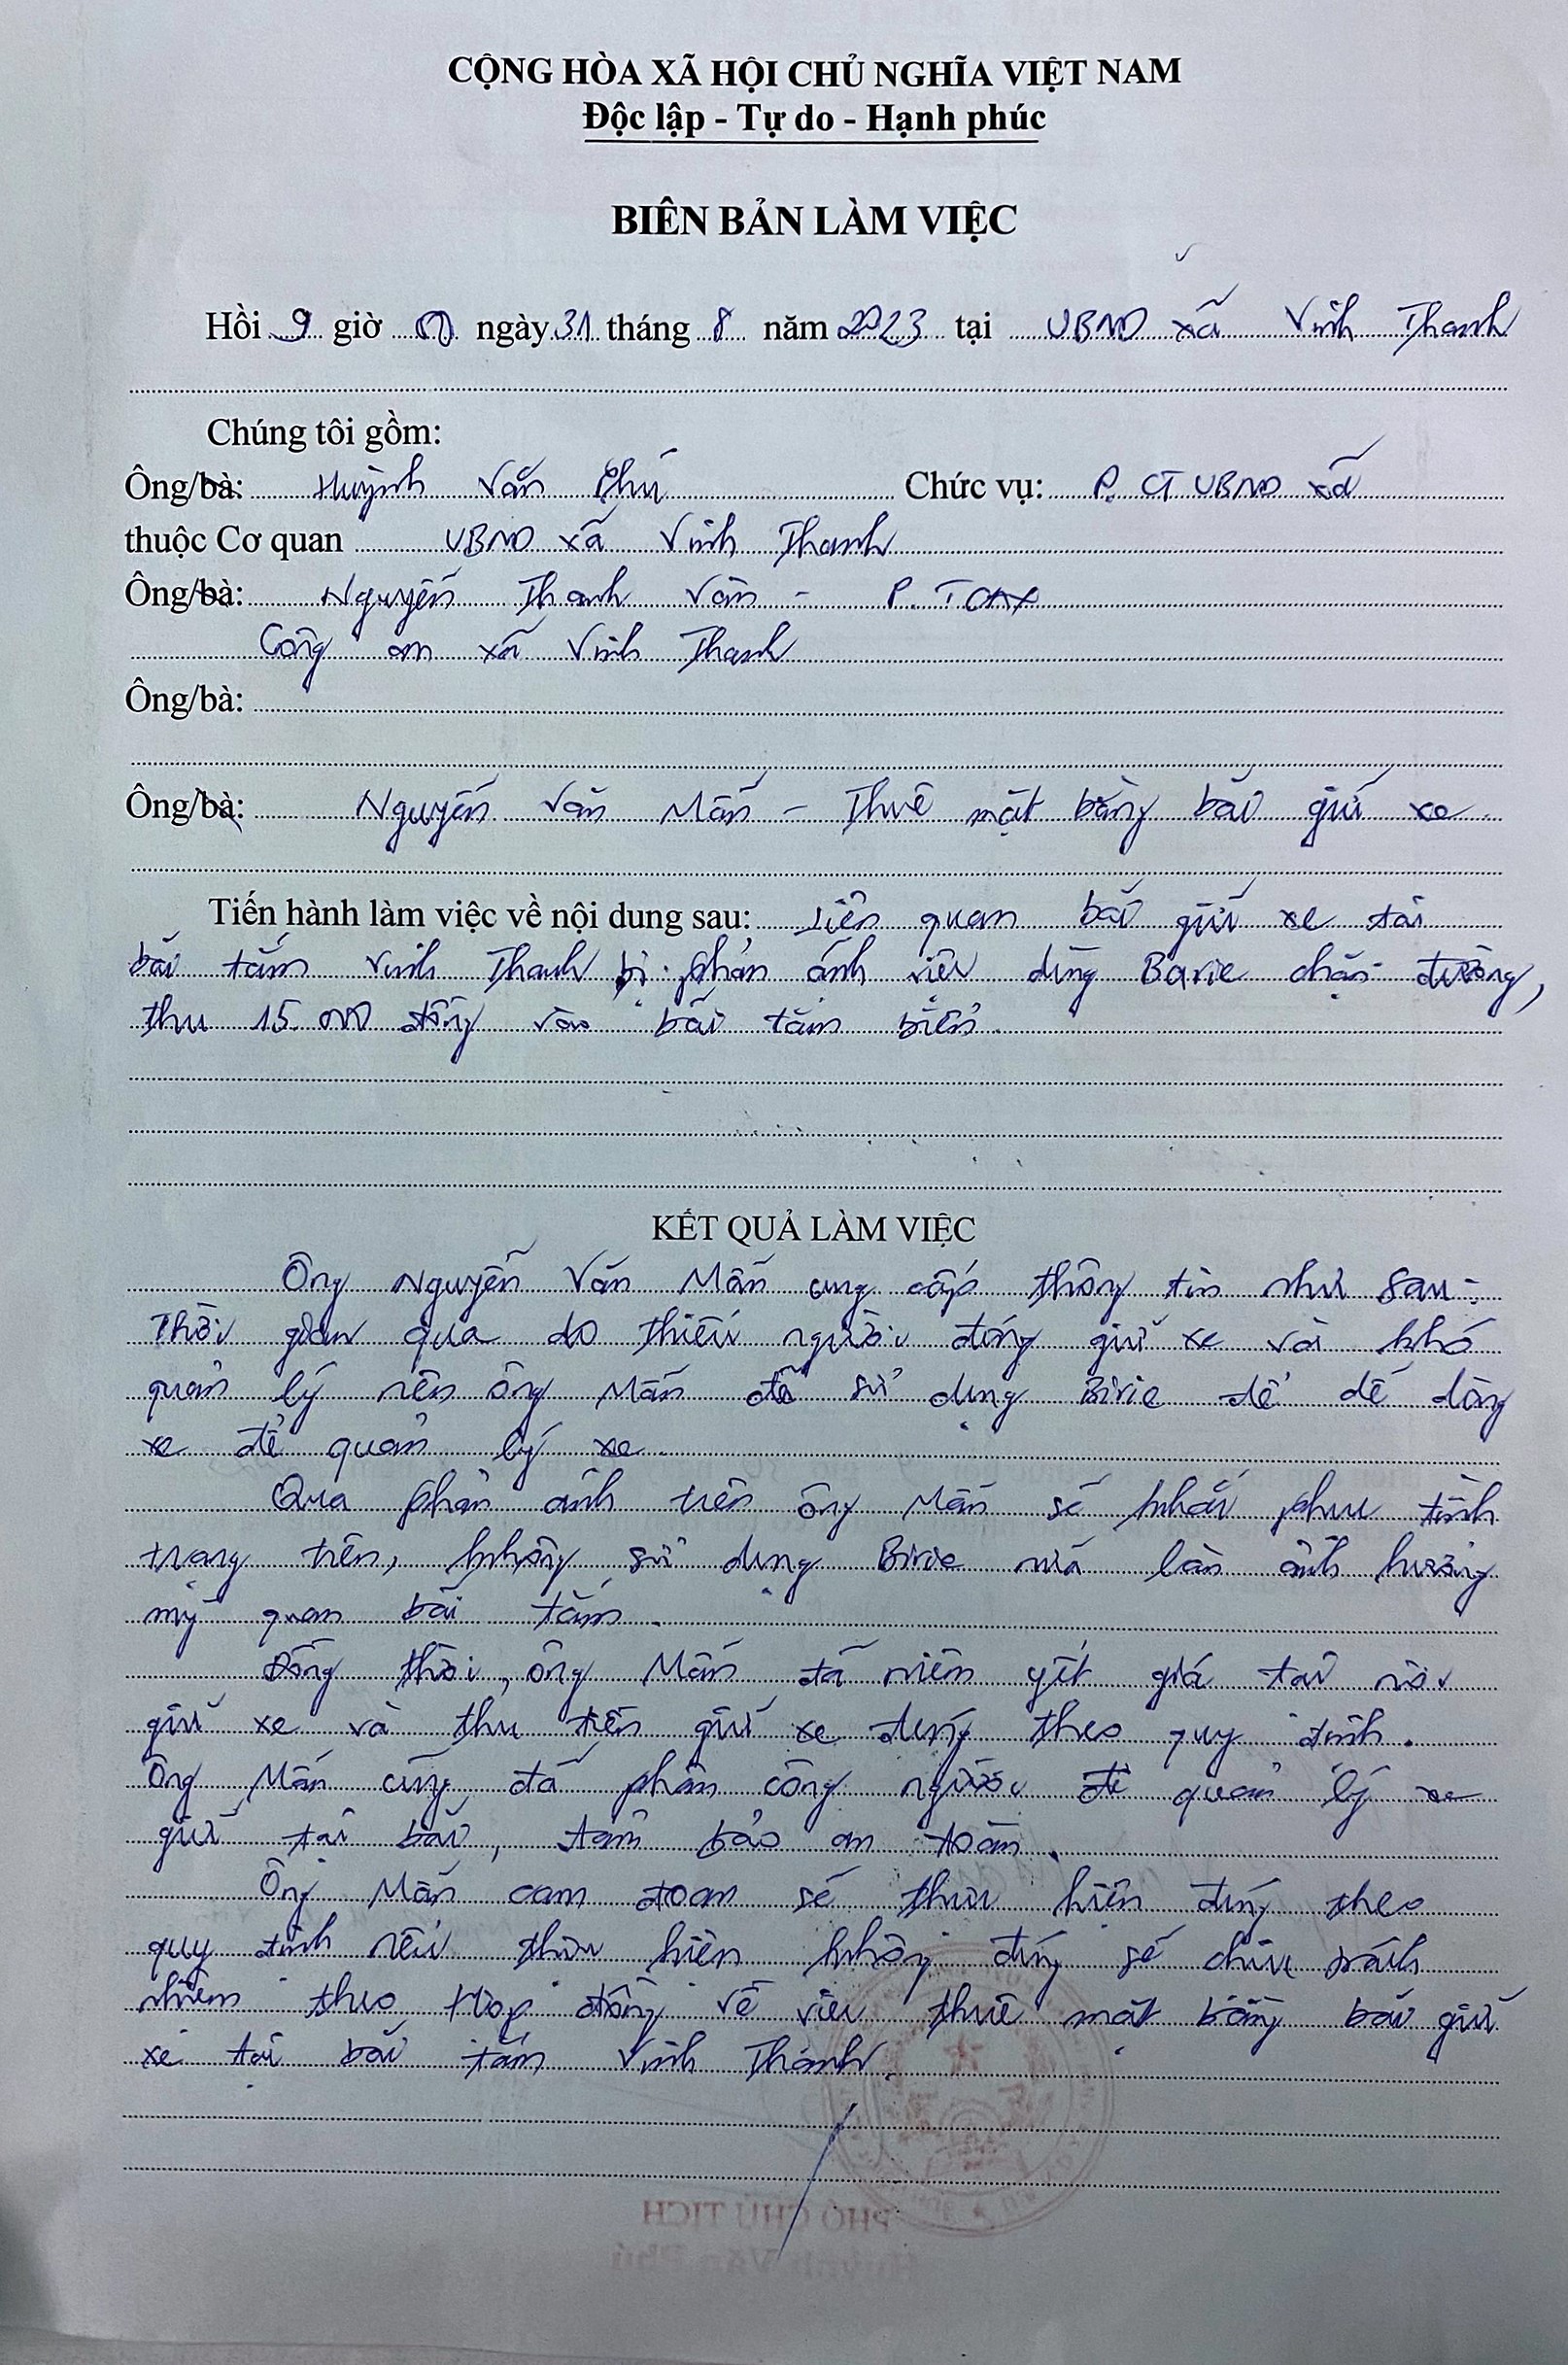 CỘNG HÒA XÃ HỘI CHỦ NGHĨA VIỆT NAM
Độc lập - Tự do - Hạnh phúc
BIÊN BẢN LÀM VIỆC
Hồi 9 giờ 00 ngày 31 tháng 8 năm 2023 tại UBND xã Vinh Thanh
Chúng tôi gồm:
Ông/bà: Huỳnh Văn Phú Chức vụ: P. CT UBND xã
thuộc Cơ quan UBND xã Vinh Thanh
Ông/bà: Nguyễn Thanh Vân - P. TCAX
Công an xã Vinh Thanh
Ông/bà:
Ông/bà: Nguyễn Văn Mẫn - Thuê mặt bằng bãi giữ xe.
Tiến hành làm việc về nội dung sau: Liên quan bãi giữ xe tại
bãi tắm Vinh Thanh bị phản ánh việc dùng Barie chặn đường,
thu 15.000 đồng vào bãi tắm biển.
KẾT QUẢ LÀM VIỆC
Ông Nguyễn Văn Mẫn cung cấp thông tin như sau:
Thời gian qua do thiếu người đứng giữ xe và khó
quản lý nên ông Mẫn đã sử dụng Birie để dễ dàng
xe để quản lý xe.
Qua phản ánh trên ông Mẫn sẽ khắc phục tình
trạng trên, không sử dụng Birie nữa làm ảnh hưởng
mỹ quan bãi tắm.
Đồng thời, ông Mẫn đã niêm yết giá tại nơi
giữ xe và thu tiền giữ xe đúng theo quy định.
Ông Mẫn cũng đã phân công người để quản lý xe
giữ tại bãi, đảm bảo an toàn.
Ông Mẫn cam đoan sẽ thực hiện đúng theo
quy định nếu thực hiện không đúng sẽ chịu trách
nhiệm theo Hợp đồng về việc thuê mặt bằng bãi giữ
xe tại bãi tắm Vinh Thanh.
PHÓ CHỦ TỊCH
Huỳnh Văn Phú